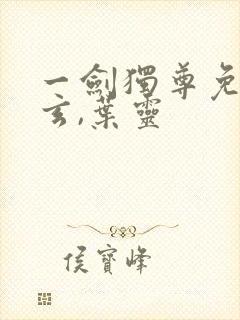 一劍獨尊免
玄,葉靈
侯寶峰